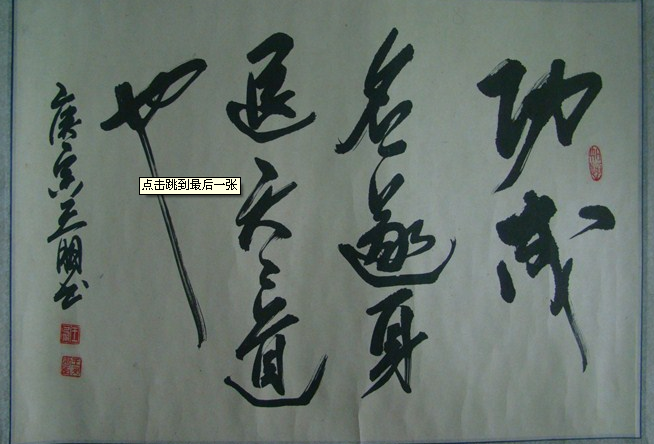 功成
名遂身
退天之道
也
庚寅书
点击跳到最后一张